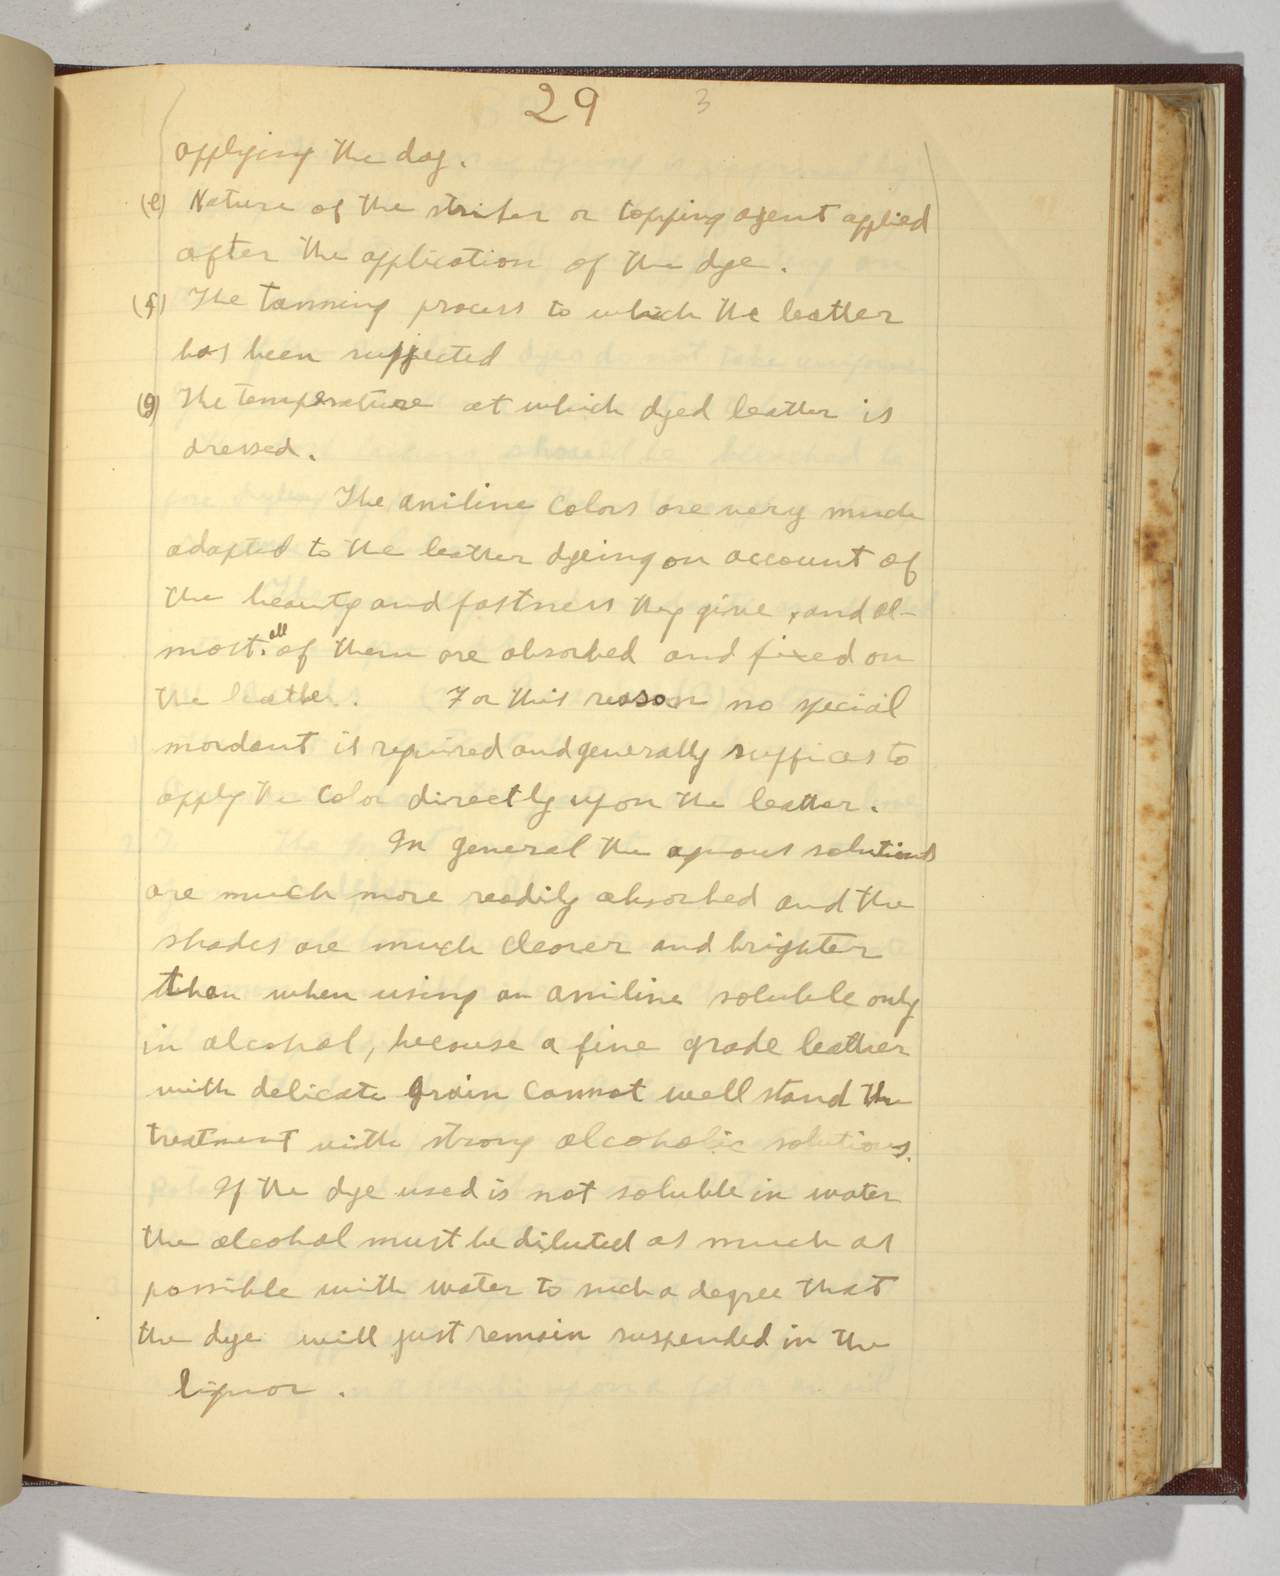 29 3
applying the day.
(e) Nature of the striker or topping agent applied
after the application of the dye.
(f) The tanning process to which the leather
has been suffected
(g) The temperature at which dyed leather is
dressed.
The aniline colors are very much
adapted to the leather dyeing on account of
the beauty and fastness they give, and al-
most all of them are absorbed and fixed on
the leather. For this reason no special
mordant is required and generally suffices to
apply the color directly upon the leather.
In general the aquous solutions
are much more readily absorbed and the
shades are much clearer and brighter
than when using an aniline soluble only
in alcohol, because a fine grade leather
with delicate grain cannot well stand the
treatment with strong alcoholic solutions.
If the dye used is not soluble in water
the alcohol must be diluted as much as
possible with water to such a degree that
the dye will just remain suspended in the
liquor.